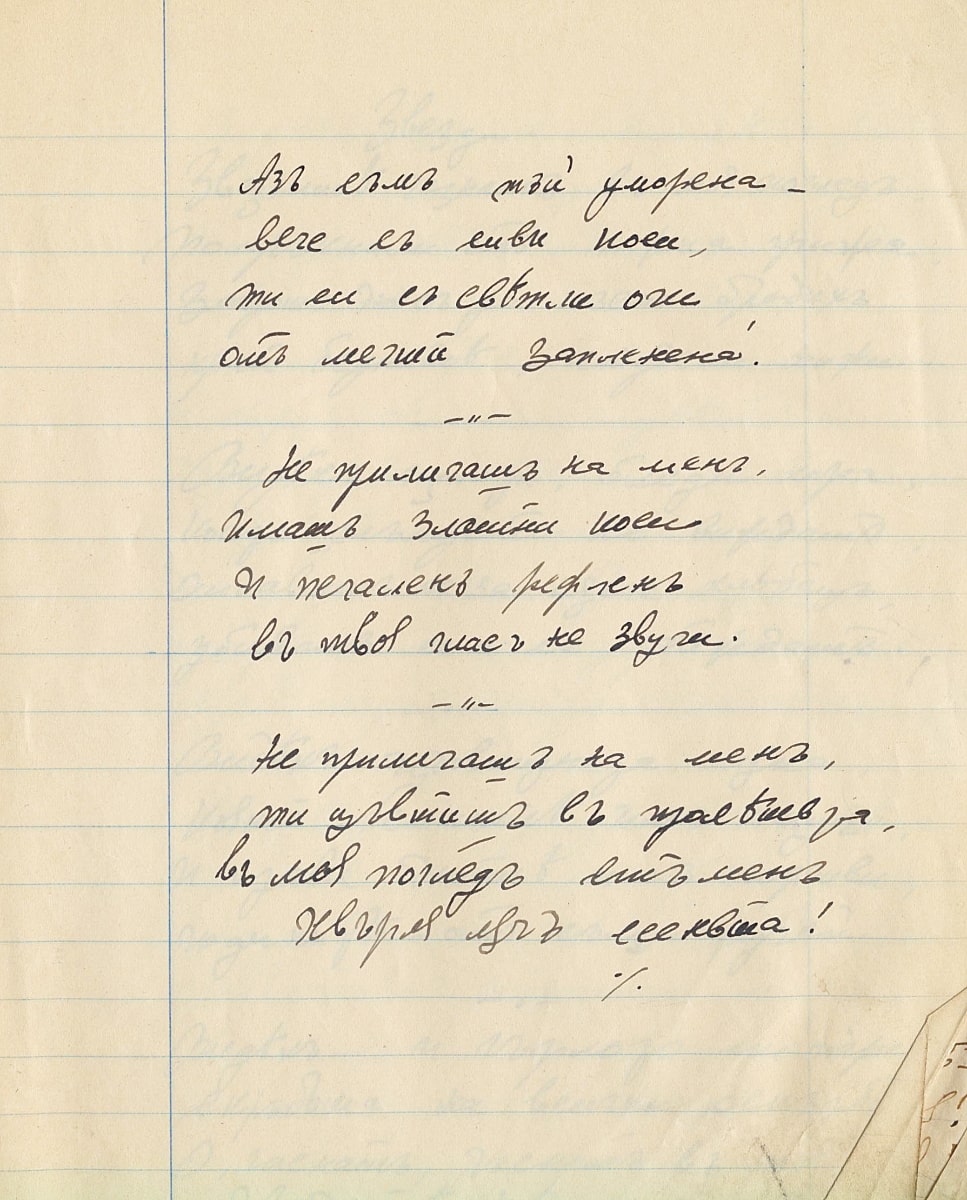 Азъ съмъ тъй уморена –
вече съ сиви коси,
ти си съ свѣтли очи
отъ мечти запленена!
–〃–
Не приличашъ на менъ,
имашъ златни коси
и печаленъ рефренъ
въ твоя гласъ не звучи.
–〃–
Не приличашъ на менъ,
ти цъвтишъ въ
въ моя погледъ стъменъ
хвърля лучъ есеньта!
·/.